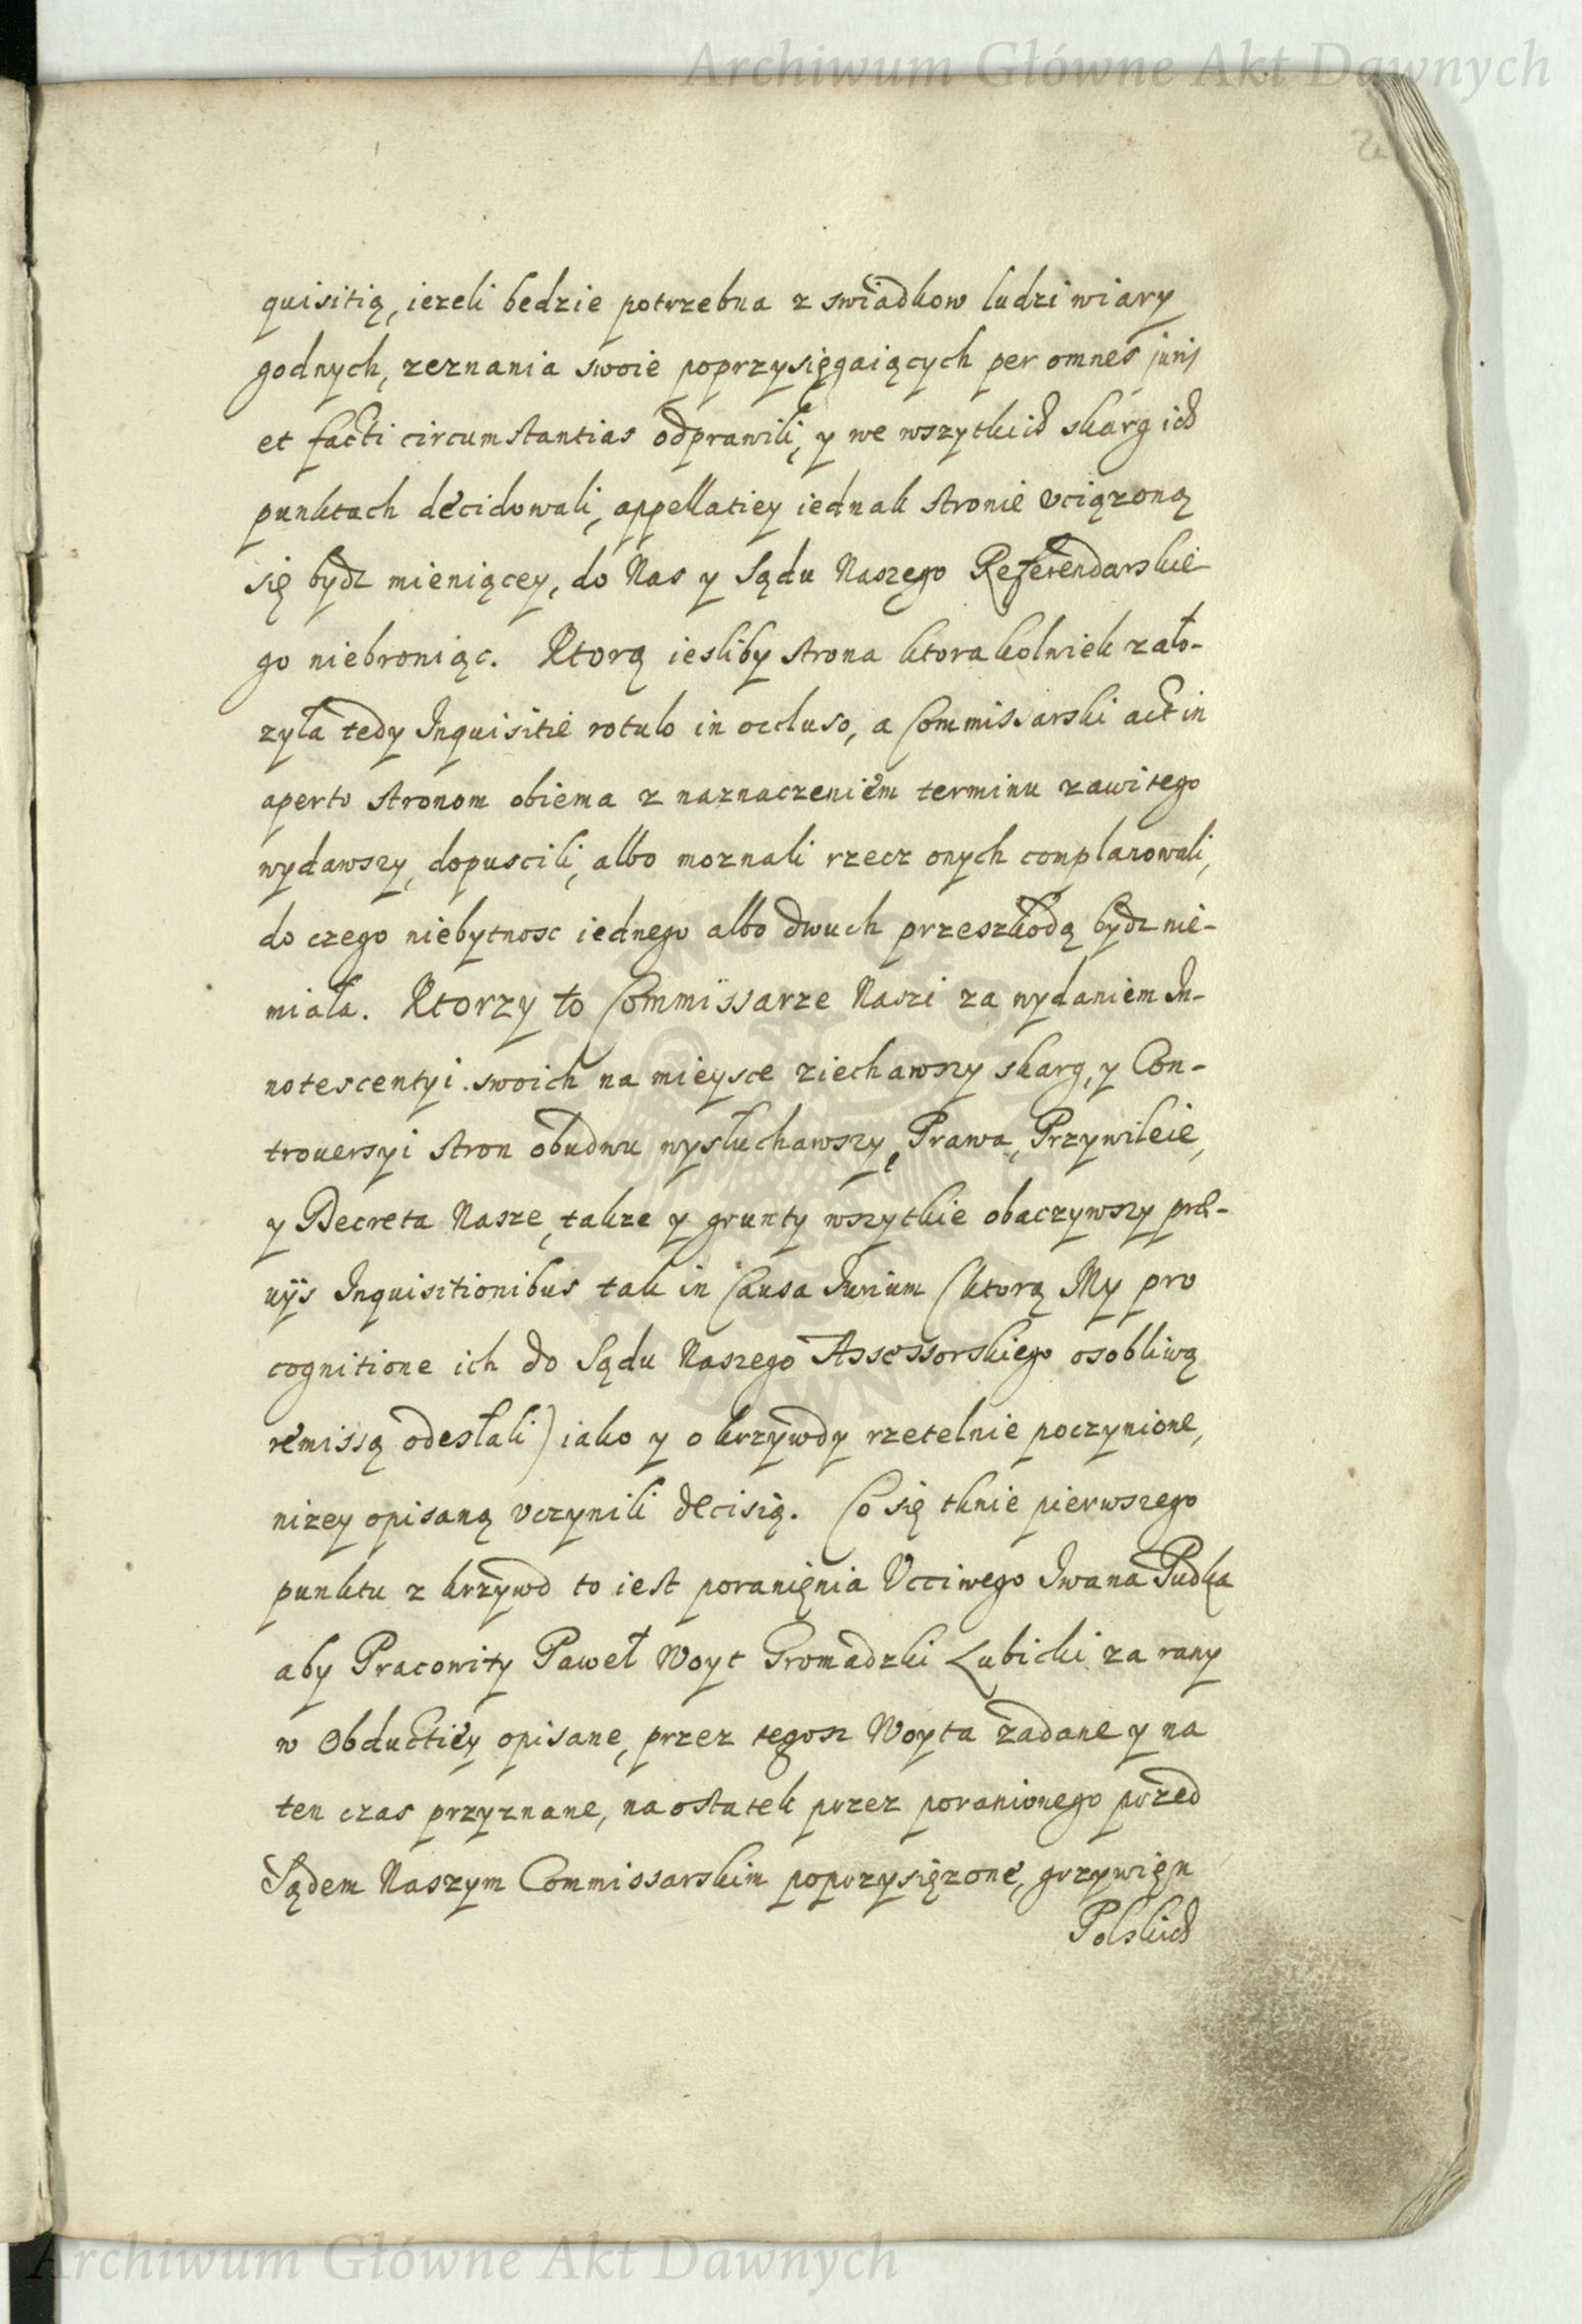 Archiwum Główne Akt Dawnych
quisitią, iezeli bedzie potrzebna z swiadkow ludzi wiary
godnych, zeznania swoie poprzysięgaiących per omnes juris
et facti circumstantias odprawili, y we wszytkich skarg ich
punktach decidowali, appellatiey iednak stronie vciązoną
się bydz mieniącey, do Nas y Sądu Naszego Referendarskie
go niebroniąc. Ktorą iesliby strona ktorakolwiek zało-
zyła tedy Inquisitie rotulo in occluso, a Commissarski act in
aperto stronom obiema z naznaczeniem terminu zawitego
wydawszy, dopuscili, albo moznali rzecz onych complanowali,
do czego niebytnosc iednego albo dwuch przeszkodą bydz nie-
miała. Ktorzy to Commissarze Naszi za wydaniem In-
notescentyi swoich na mieysce ziechawszy skarg, y Con-
trouersyi stron obudwu wysłuchawszy, Prawa, Przywileie,
y Decreta Nasze, takze y grunty wszytkie obaczywszy præ-
uijs Inquisitionibus tak in Causa Iurium (ktorą My pro
cognitione ich do Sądu Naszego Assessorskiego osobliwą
remissą odesłali) iako y o krzywdy rzetelnie poczynione,
nizey opisaną vczynili decisią. Co się tknie pierwszego
punktu z krzywd to iest poranięnia Vcciwego Iwana Pudka
aby Pracowity Paweł Woyt Gromadzki Lubicki za rany
w Obductiey opisane, przez tegosz Woyta zadane y na
ten czas przyznane, na ostatek przez poranionego przed
Sądem Naszym Commissarskim poprzysięzone, grzywięn
Polskich
Archiwum Główne Akt Dawnych